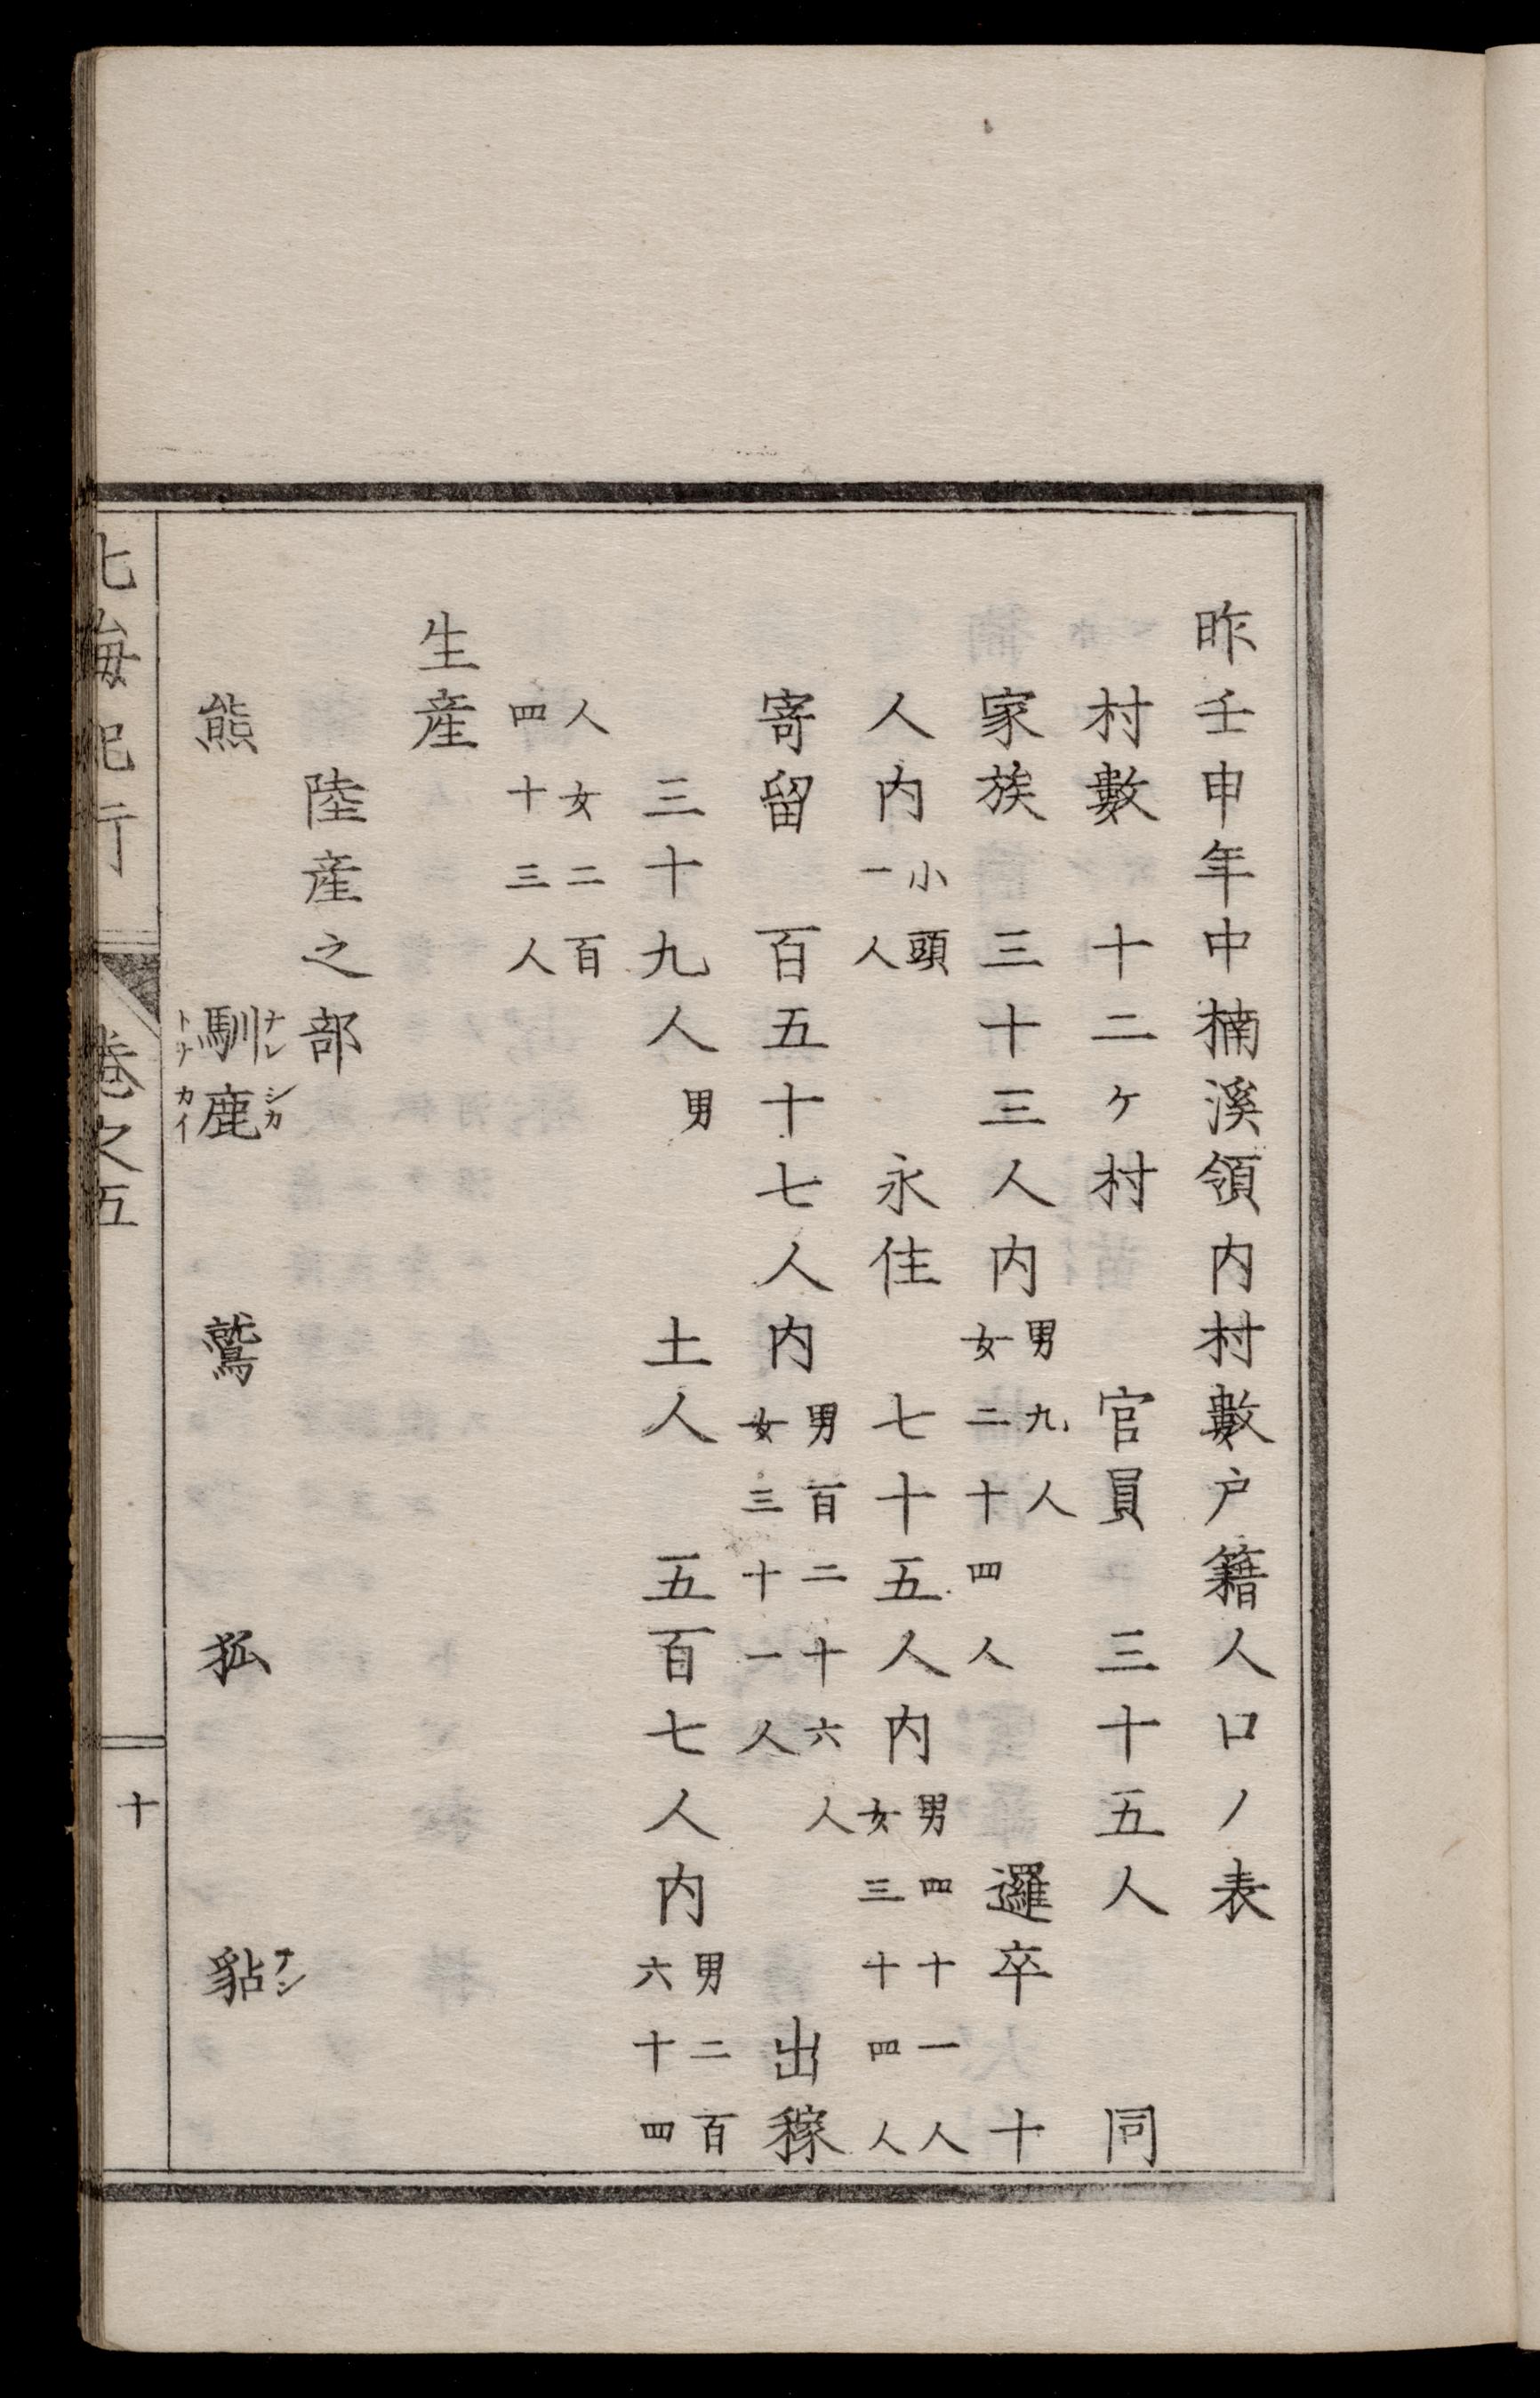 昨壬申年中楠溪領内村數戸籍人口ノ表
村數 十二ケ村 官員 三十五人 同
家族 三十三人内 男九人 女二十四人 邏卒 十
人内 小頭一人 永住 七十五人内 男四十一人 女三十四人
寄留 百五十七人内 男百二十六人 女三十一人 出稼
三十九人 男 土人 五百七人内 男二百六十四
人女二百四十三人
生産
陸産之部
熊 馴鹿 ナレシカ トナカイ 鷲 狐 貂
北海紀行 卷之五 十